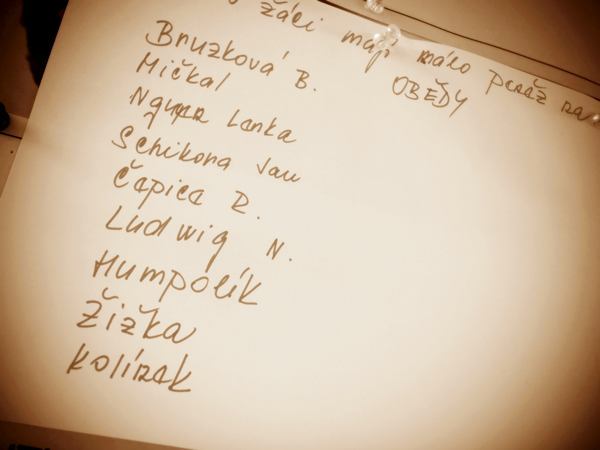 žáci mají málo peněz na
OBĚDY
Bruzková B.
Mičkal
Nguyen Lenka
Schikora Jan
Čapica R.
Ludwig N.
Humpolík
Žižka
Kolínek